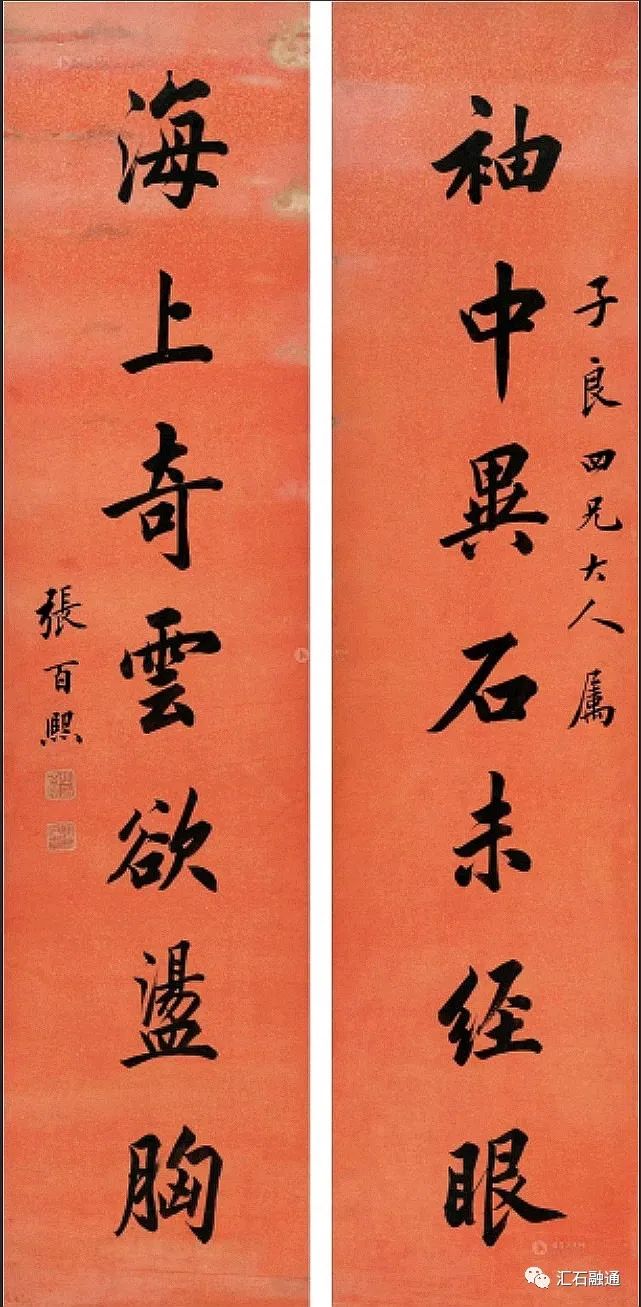 子良四兄大人属
袖中異石未经眼
海上奇雲欲盪胸
張百熙
汇石融通